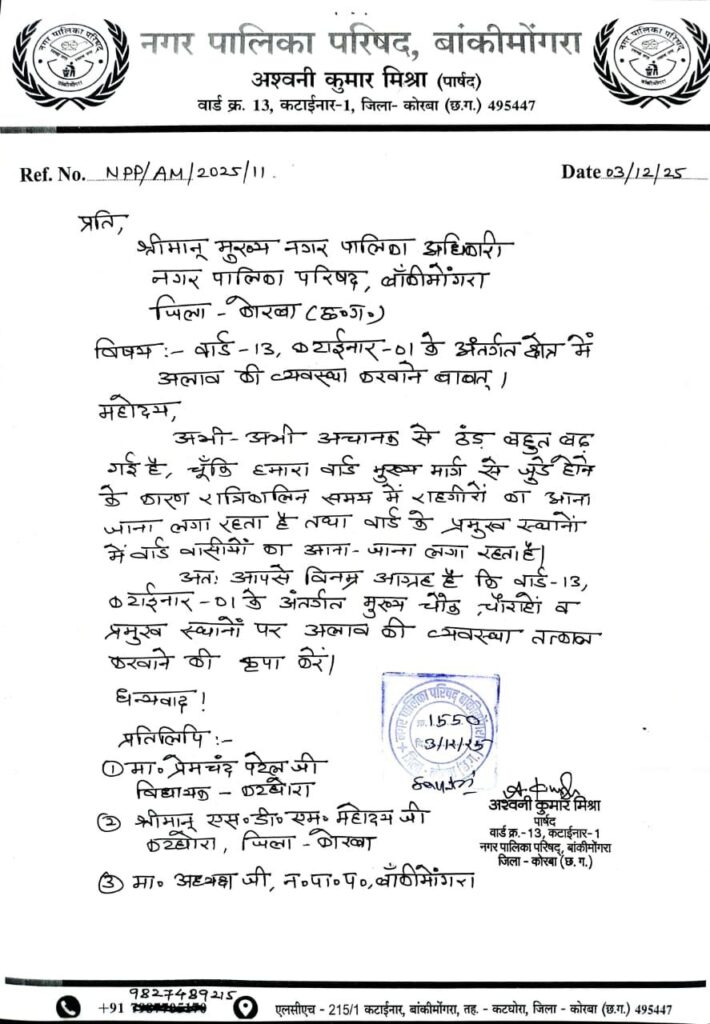 नगर पालिका परिषद, बांकीमोंगरा
अश्वनी कुमार मिश्रा (पार्षद)
वार्ड क्र. 13, कटाईनार-1, जिला- कोरबा (छ.ग.) 495447
Ref. No. NPP/AM/2025/11.
Date 03/12/25
प्रति,
श्रीमान् मुख्य नगर पालिका अधिकारी
नगर पालिका परिषद, बाँकीमोंगरा
जिला - कोरबा (छ०ग०)
विषय :- वार्ड -13, कटाईनार -01 के अंतर्गत क्षेत्र में
अलाव की व्यवस्था करवाने बाबत् ।
महोदय,
अभी-अभी अचानक से ठंड बहुत बढ़
गई है, चूँकि हमारा वार्ड मुख्य मार्ग से जुडे होने
के कारण रात्रिकालिन समय में राहगीरों का आना
जाना लगा रहता है तथा वार्ड के प्रमुख स्थानों
में वार्ड वासीयों का आना-जाना लगा रहता है।
अतः आपसे विनम्र आग्रह है कि वार्ड-13,
कटाईनार -01 के अंतर्गत मुख्य चौक, चौराहों व
प्रमुख स्थानों पर अलाव की व्यवस्था तत्काल
करवाने की कृपा करें।
धन्यवाद !
नगर पालिका परिषद् बांकीमोंगरा
1550
3/12/25
प्रतिलिपि :-
① मा० प्रेमचंद पटेल जी
विधायक - कटघोरा
② श्रीमान् एस०डी०एम० महोदय जी
कटघोरा, जिला - कोरबा
③ मा० अध्यक्ष जी, न०पा०प०, बाँकीमोंगरा
अश्वनी कुमार मिश्रा
पार्षद
वार्ड क्र.-13, कटाईनार-1
नगर पालिका परिषद्, बांकीमोंगरा
जिला - कोरबा (छ. ग.)
9827489215
+91
एलसीएच - 215/1 कटाईनार, बांकीमोंगरा, तह. - कटघोरा, जिला - कोरबा (छ.ग.) 495447